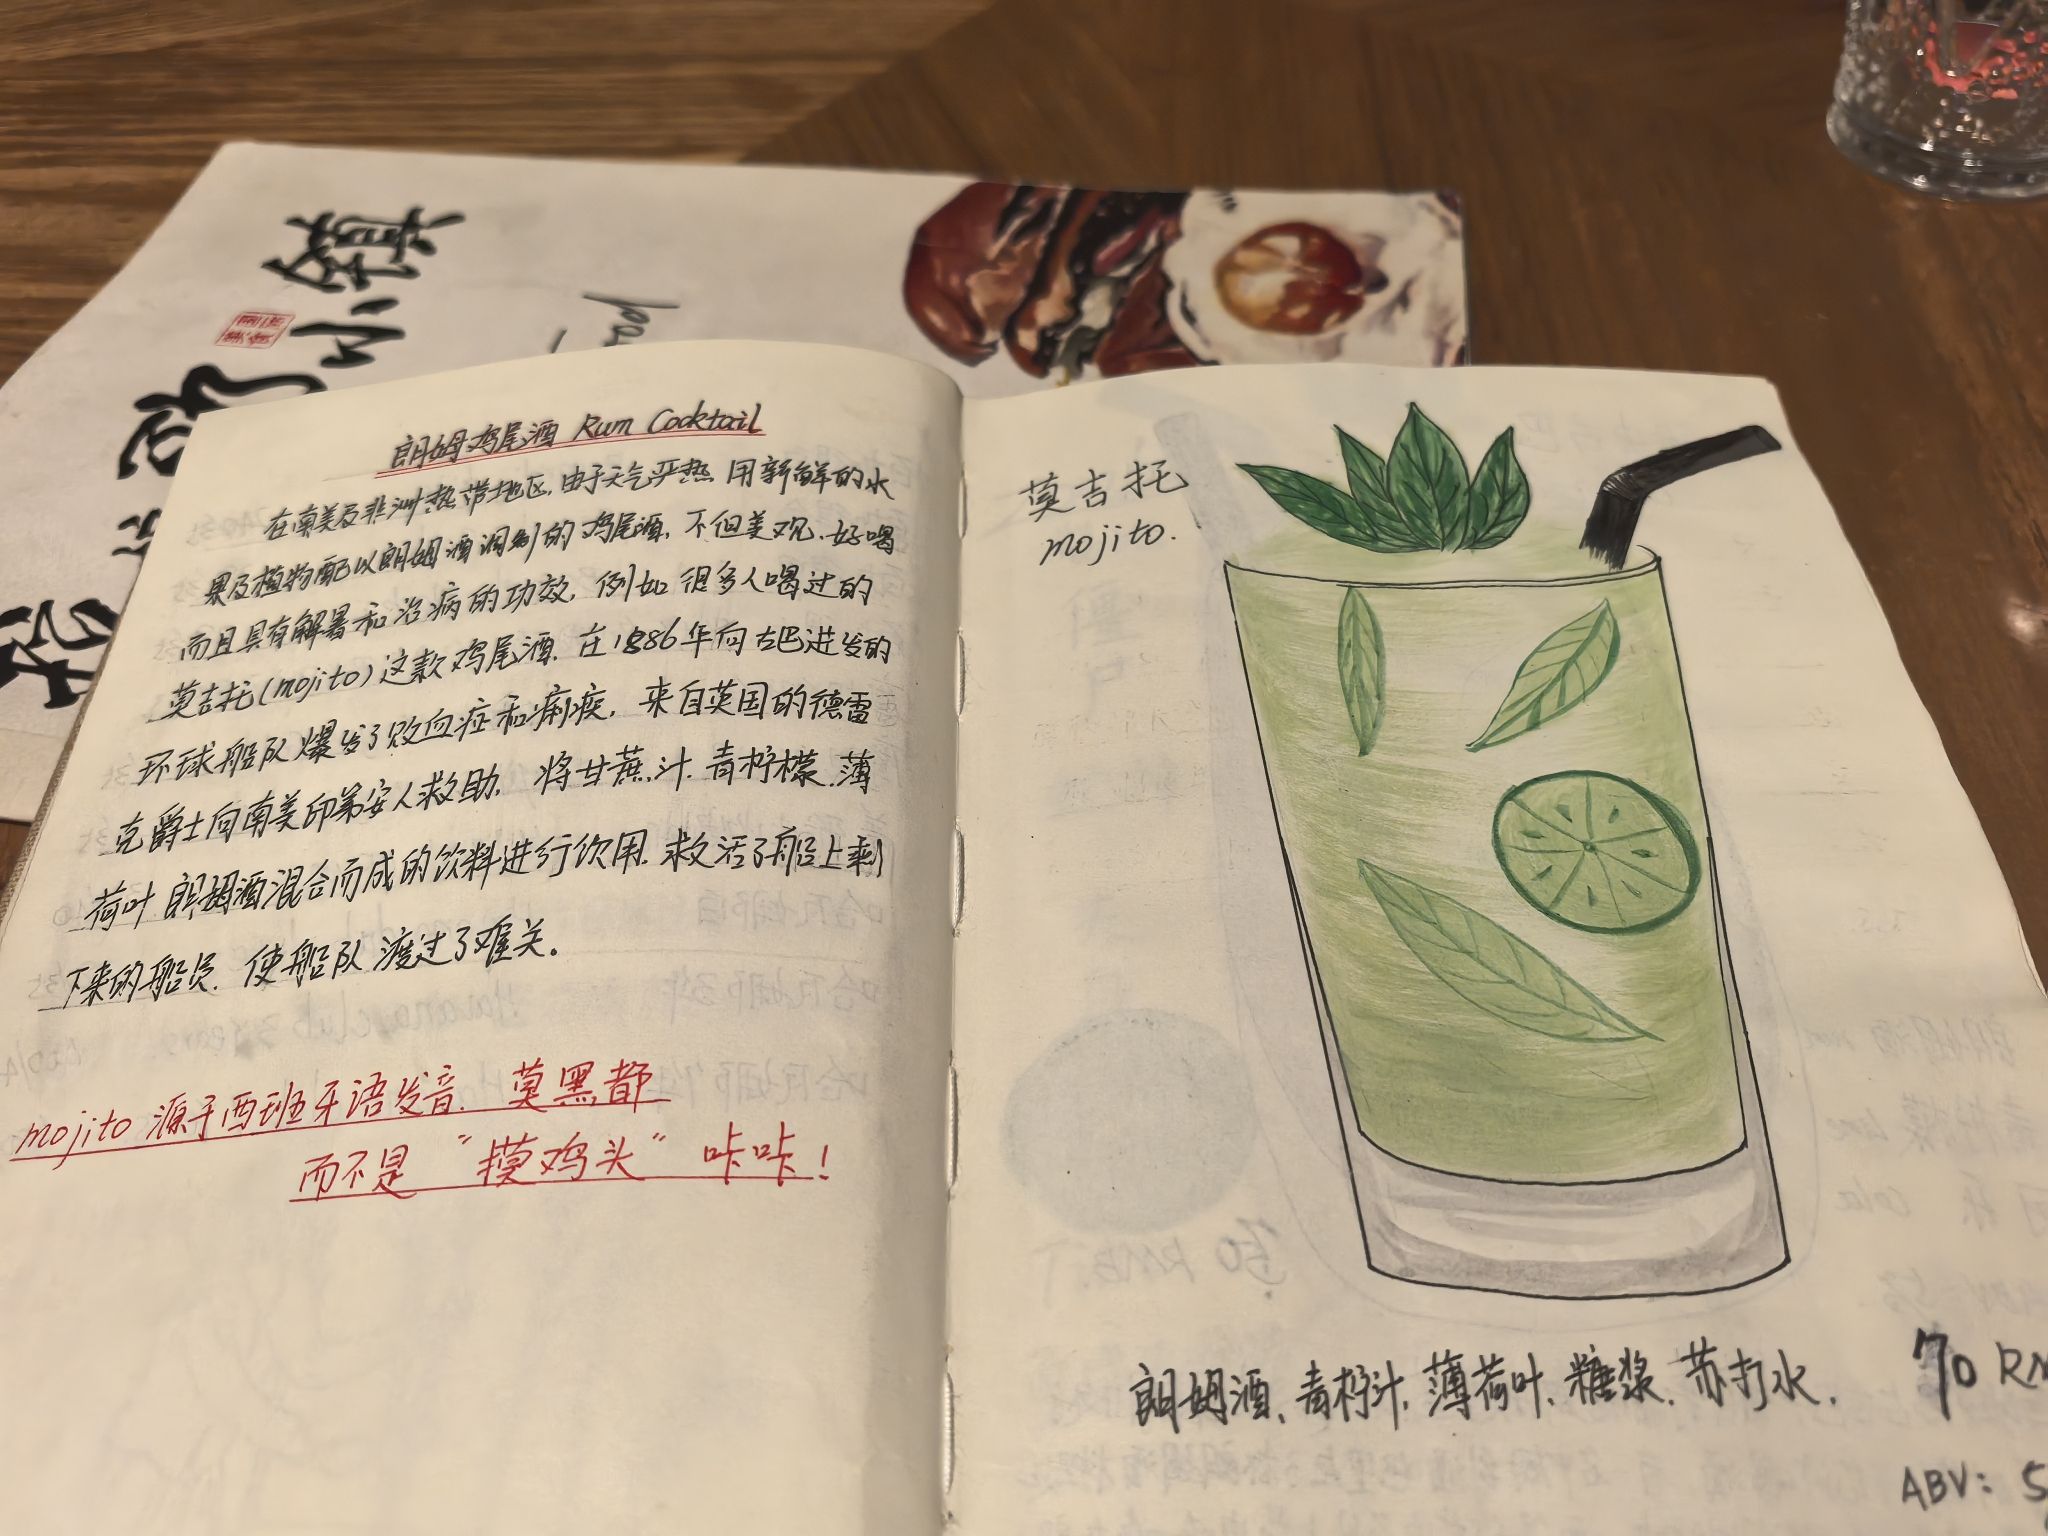 朗姆鸡尾酒 Rum Cocktail
在南美及非洲热带地区,由于天气严热,用新鲜的水
果及植物配以朗姆酒调制的鸡尾酒,不但美观、好喝
而且具有解暑和治病的功效,例如很多人喝过的
莫吉托(mojito)这款鸡尾酒.在1886年向古巴进发的
环球船队爆发了败血症和痢疾,来自英国的德雷
克爵士向南美印第安人救助,将甘蔗汁.青柠檬.薄
荷叶.朗姆酒混合而成的饮料进行饮用.救活了船上剩
下来的船员.使船队渡过了难关。
mojito 源于西班牙语发音.莫黑都
而不是 "摸鸡头" 咔咔!
莫吉托
mojito.
朗姆酒、青柠汁,薄荷叶、糖浆、苏打水.
70 RM
ABV: 5
小镇